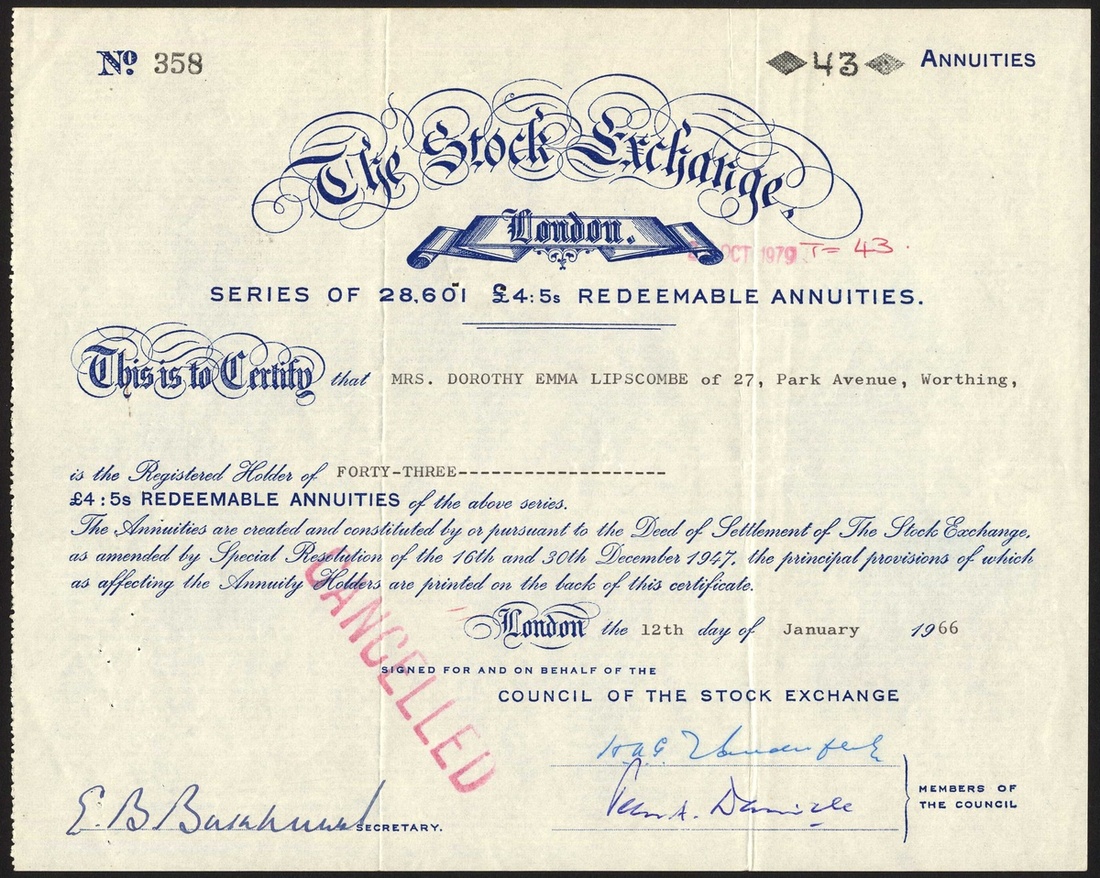 Nº 358
43 ANNUITIES
The Stock Exchange,
London.
OCT 1979 T= 43.
SERIES OF 28,601 £4:5s REDEEMABLE ANNUITIES.
This is to Certify that MRS. DOROTHY EMMA LIPSCOMBE of 27, Park Avenue, Worthing,
is the Registered Holder of FORTY-THREE--------------------
£4:5s REDEEMABLE ANNUITIES of the above series.
The Annuities are created and constituted by or pursuant to the Deed of Settlement of The Stock Exchange,
as amended by Special Resolution of the 16th and 30th December 1947, the principal provisions of which
as affecting the Annuity Holders are printed on the back of this certificate.
CANCELLED
London the 12th day of January 1966
SIGNED FOR AND ON BEHALF OF THE
COUNCIL OF THE STOCK EXCHANGE
MEMBERS OF
THE COUNCIL
E. B.
SECRETARY.